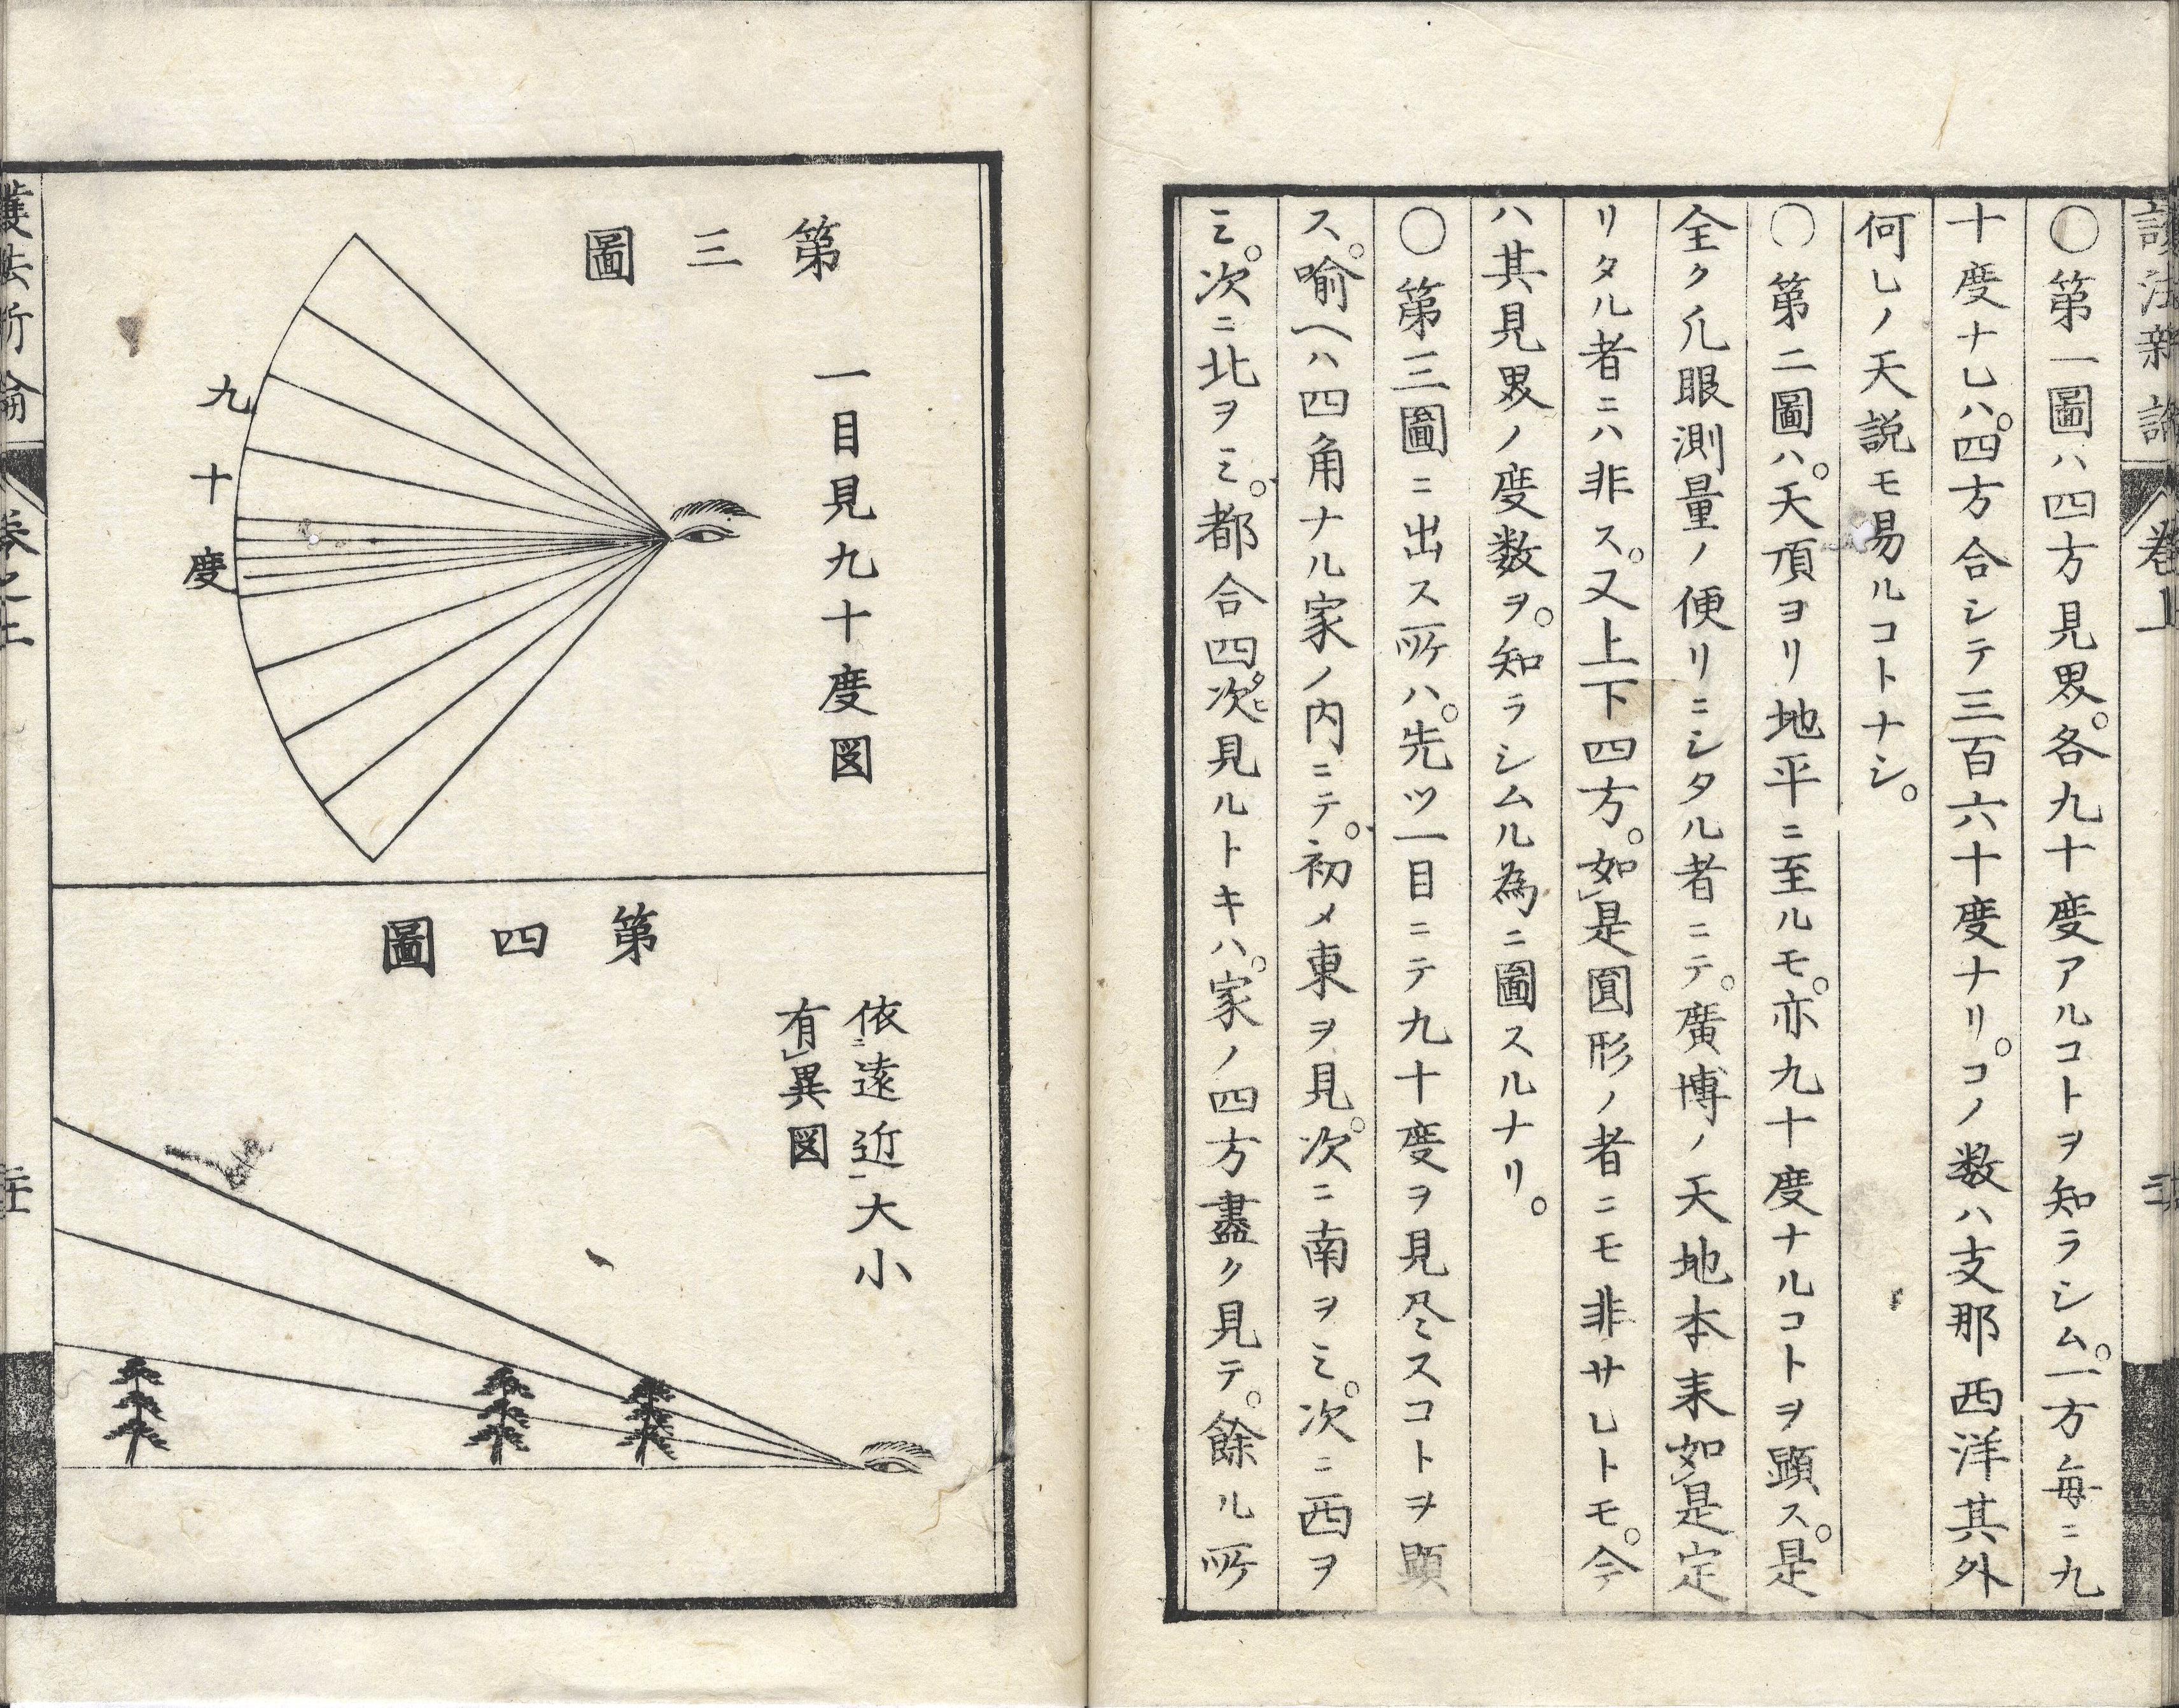 ○第一圖ハ四方見界。各九十度アルコトヲ知ラシム。一方毎ニ九
十度ナレハ。四方合シテ三百六十度ナリ。コノ数ハ支那西洋其外
何レノ天説モ易ルコトナシ。
○第二圖ハ。天頂ヨリ地平ニ至ルモ。亦九十度ナルコトヲ顕ス。是
全ク凢眼測量ノ便リニシタル者ニテ。廣博ノ天地本来如是定
リタル者ニハ非ス。又上下四方。如是圓形ノ者ニモ非サレトモ。今
ハ其見界ノ度数ヲ。知ラシムル為ニ圖スルナリ。
○第三圖ニ出ス所ハ。先ツ一目ニテ九十度ヲ見尽スコトヲ顕
ス。喻ヘハ四角ナル家ノ内ニテ。初メ東ヲ見。次ニ南ヲミ。次ニ西ヲ
ミ。次ニ北ヲミ。都合四次タヒ見ルトキハ。家ノ四方盡ク見テ。餘ル所
第三圖
一目見九十度図
九十度
第四圖
依ニ遠近一大小
有レ異図